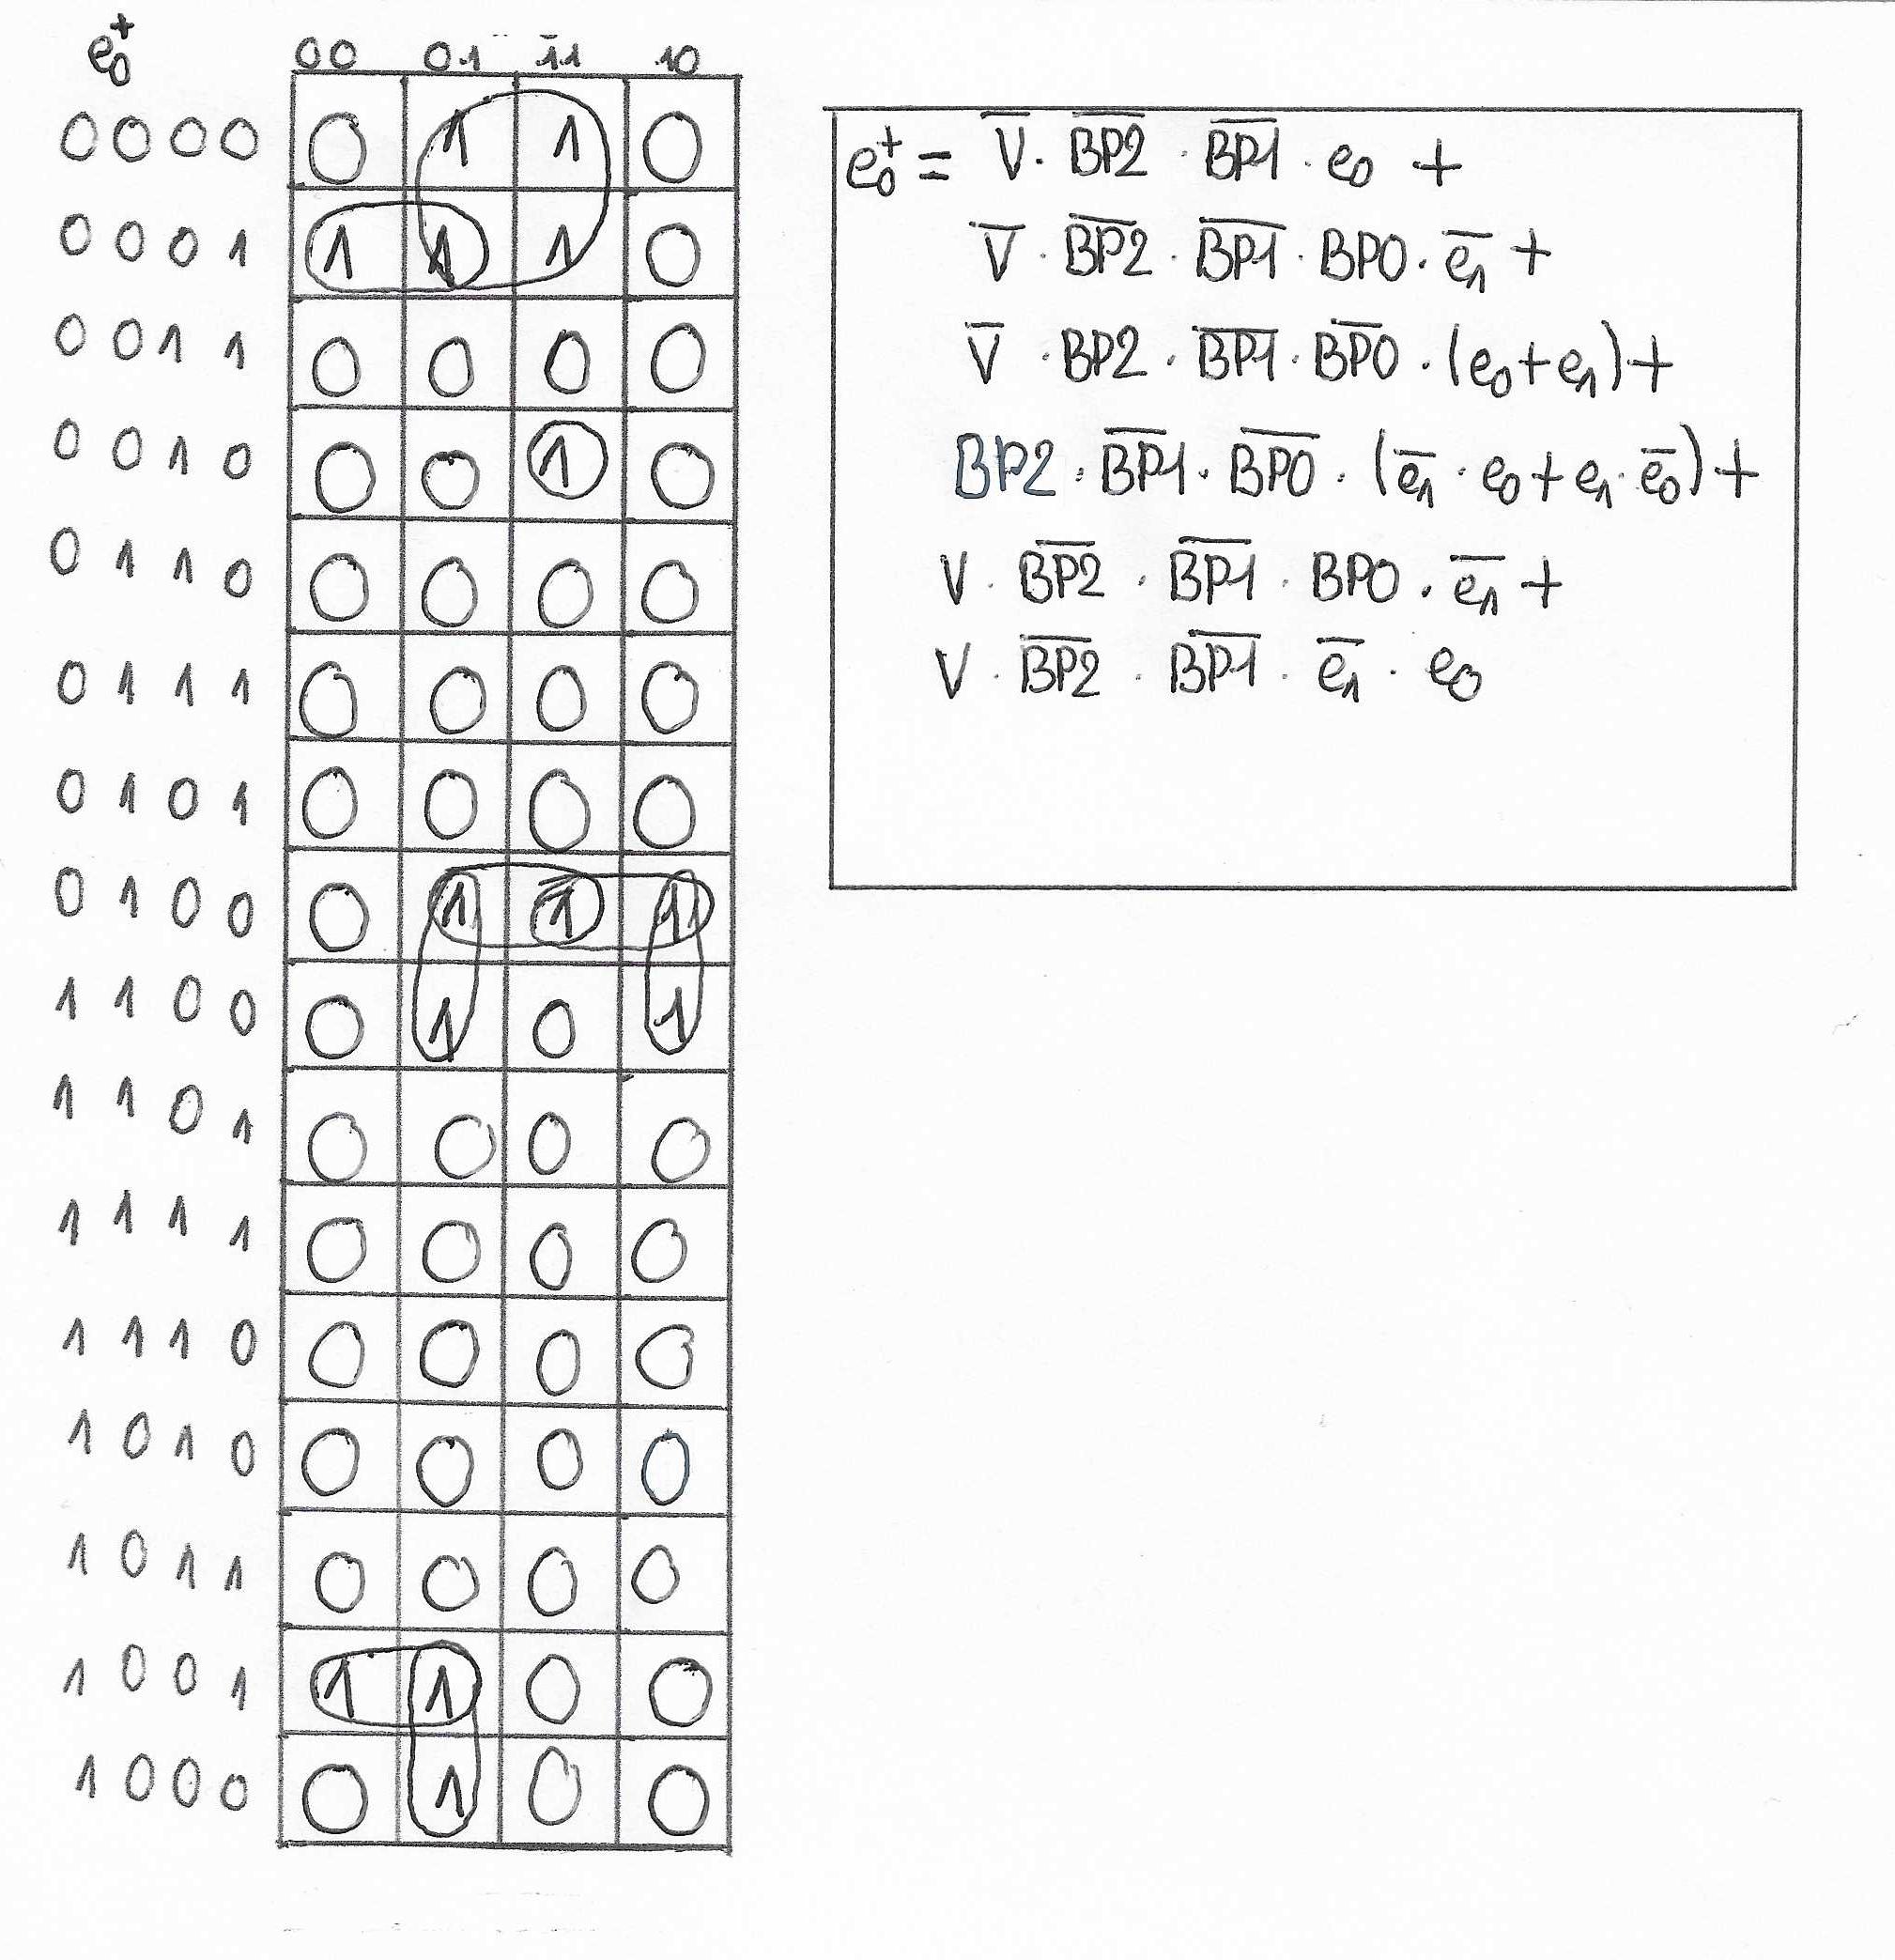 e₀⁺ 00 01 11 10
0000 0 1 1 0
0001 1 1 1 0
0011 0 0 0 0
0010 0 0 1 0
0110 0 0 0 0
0111 0 0 0 0
0101 0 0 0 0
0100 0 1 1 1
1100 0 1 0 1
1101 0 0 0 0
1111 0 0 0 0
1110 0 0 0 0
1010 0 0 0 0
1011 0 0 0 0
1001 1 1 0 0
1000 0 1 0 0
e₀⁺ = V̅ · B̅P̅2̅ · B̅P̅1̅ · e₀ +
V̅ · B̅P̅2̅ · B̅P̅1̅ · BP0 · e̅₁ +
V̅ · BP2 · B̅P̅1̅ · B̅P̅0̅ · (e₀+e₁) +
BP2 · B̅P̅1̅ · B̅P̅0̅ · (e̅₁ · e₀ + e₁ · e̅₀) +
V · B̅P̅2̅ · B̅P̅1̅ · BP0 · e̅₁ +
V · B̅P̅2̅ · B̅P̅1̅ · e̅₁ · e₀